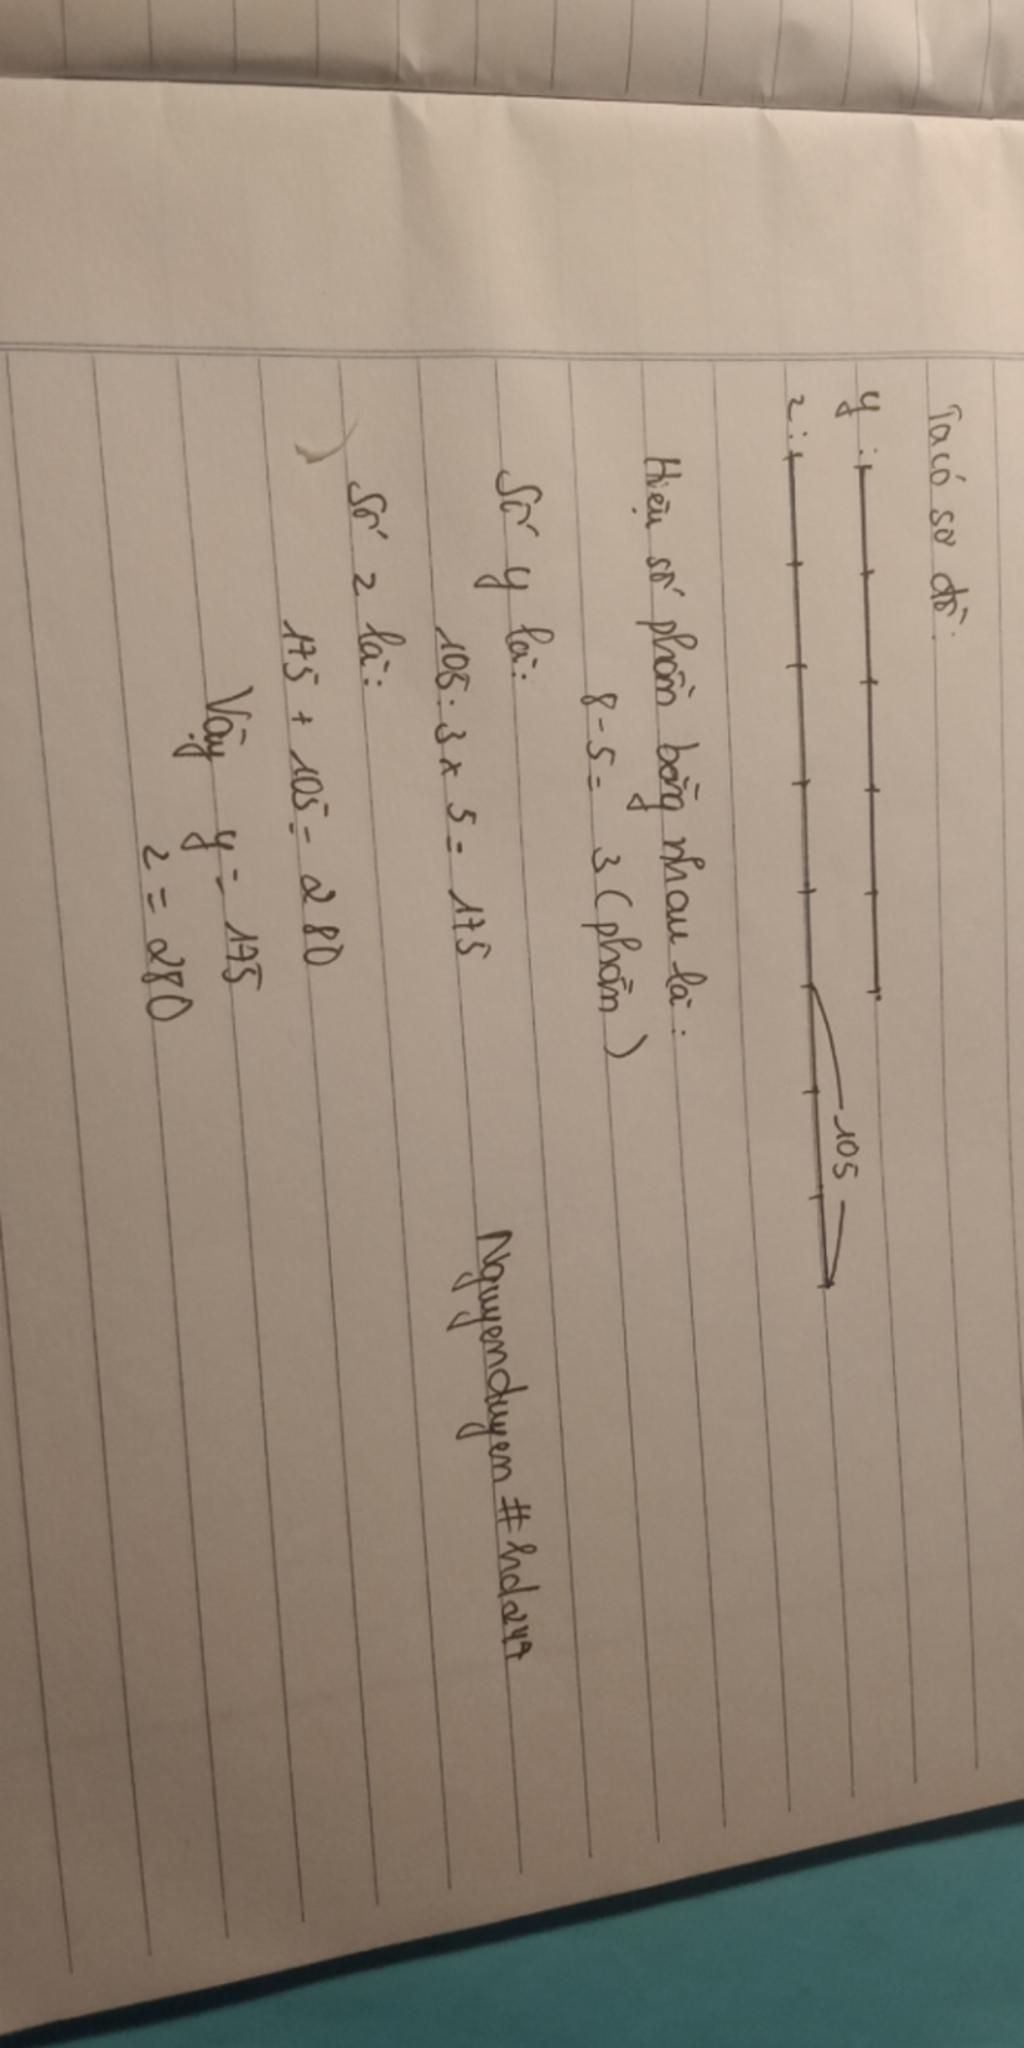 Ta có sơ đồ:
y:
105
z:
Hiệu số phần bằng nhau là:
8-5= 3 (phần)
Số y là:
105:3 x 5 = 175
Nguyenduyen #hd249
Số z là:
175 + 105 = 280
Vậy y = 175
z = 280